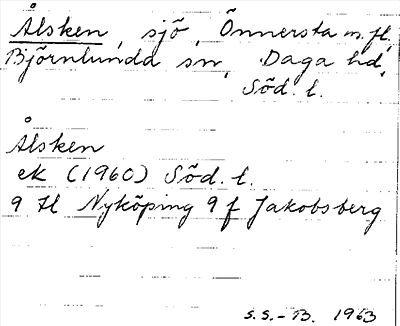 Ålsken, sjö, Önnersta m. fl.,
Björnlunda sn, Daga hd,
Söd. l.
Ålsken
ek (1960) Söd. l.
9 H Nyköping 9 f Jakobsberg
s.s.-B. 1963